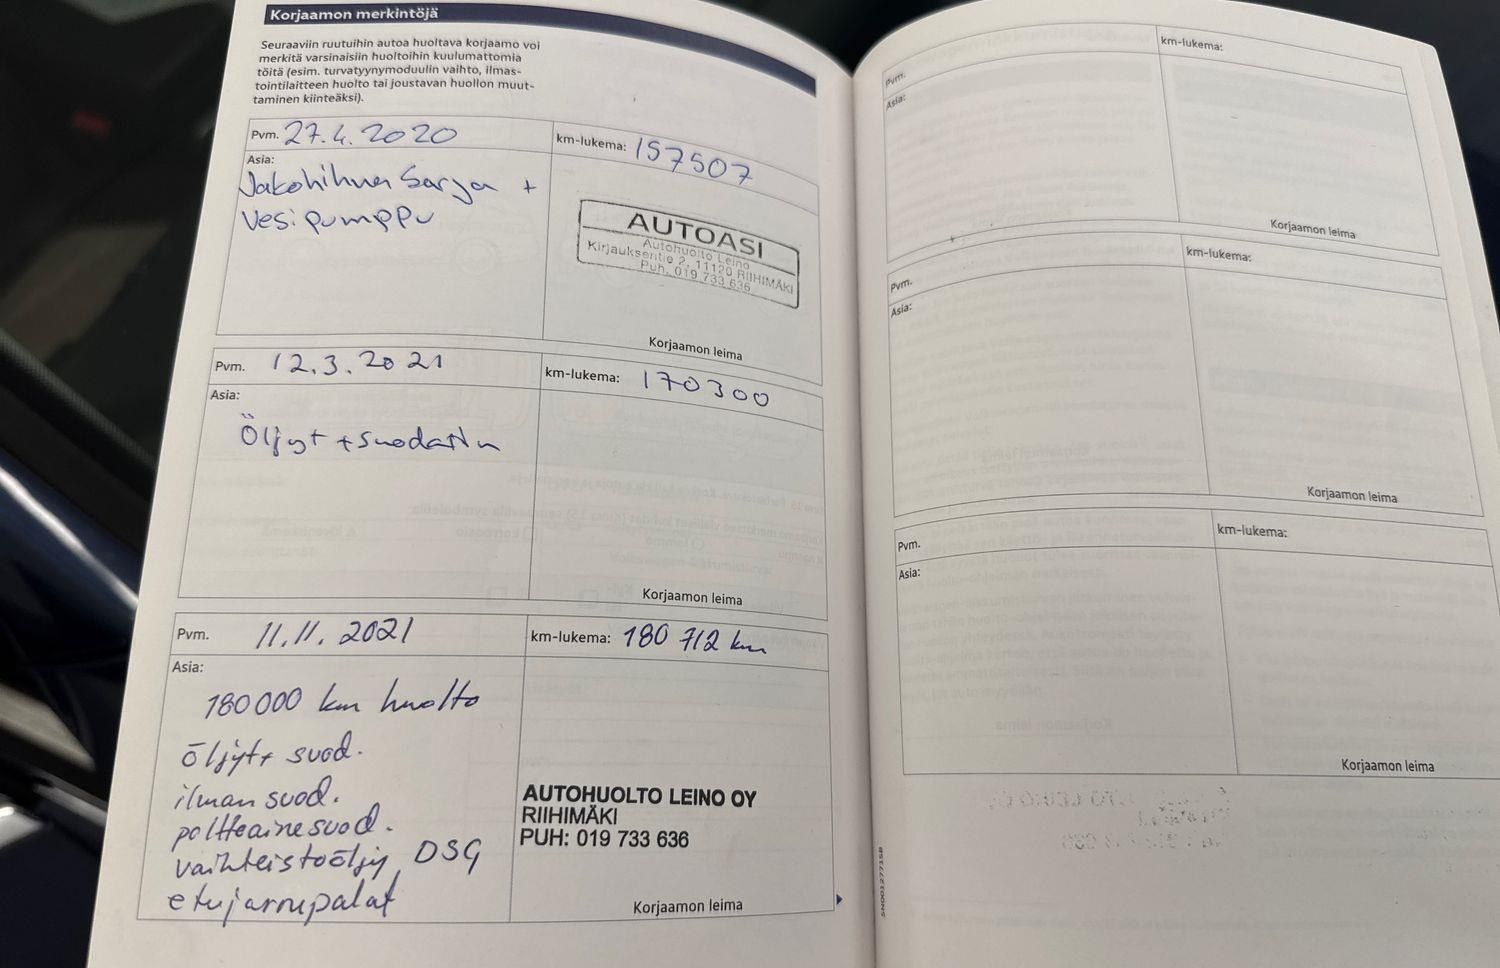 Korjaamon merkintöjä
Seuraaviin ruutuihin autoa huoltava korjaamo voi
merkitä varsinaisiin huoltoihin kuulumattomia
töitä (esim. turvatyynymoduulin vaihto, ilmas-
tointilaitteen huolto tai joustavan huollon muut-
taminen kiinteäksi).
Pvm. 27.4.2020
km-lukema: 157507
Asia:
Jakohihna Sarja +
Vesipumppu
AUTOASI
Autohuolto Leino
Kirjauksentie 2, 11120 RIIHIMÄKI
Puh. 019 733 636
Korjaamon leima
Pvm. 12.3.2021
km-lukema: 170300
Asia:
Öljyt + suodatin
Korjaamon leima
Pvm. 11.11.2021
km-lukema: 180 712 km
Asia:
180 000 km huolto
öljyt+ suod.
ilman suod.
polttoainesuod.
vaihteistoöljy, DSG
etujarrupalat
AUTOHUOLTO LEINO OY
RIIHIMÄKI
PUH: 019 733 636
Korjaamon leima
Pvm.
km-lukema:
Asia:
Korjaamon leima
Pvm.
km-lukema:
Asia:
Korjaamon leima
Pvm.
km-lukema:
Asia:
Korjaamon leima